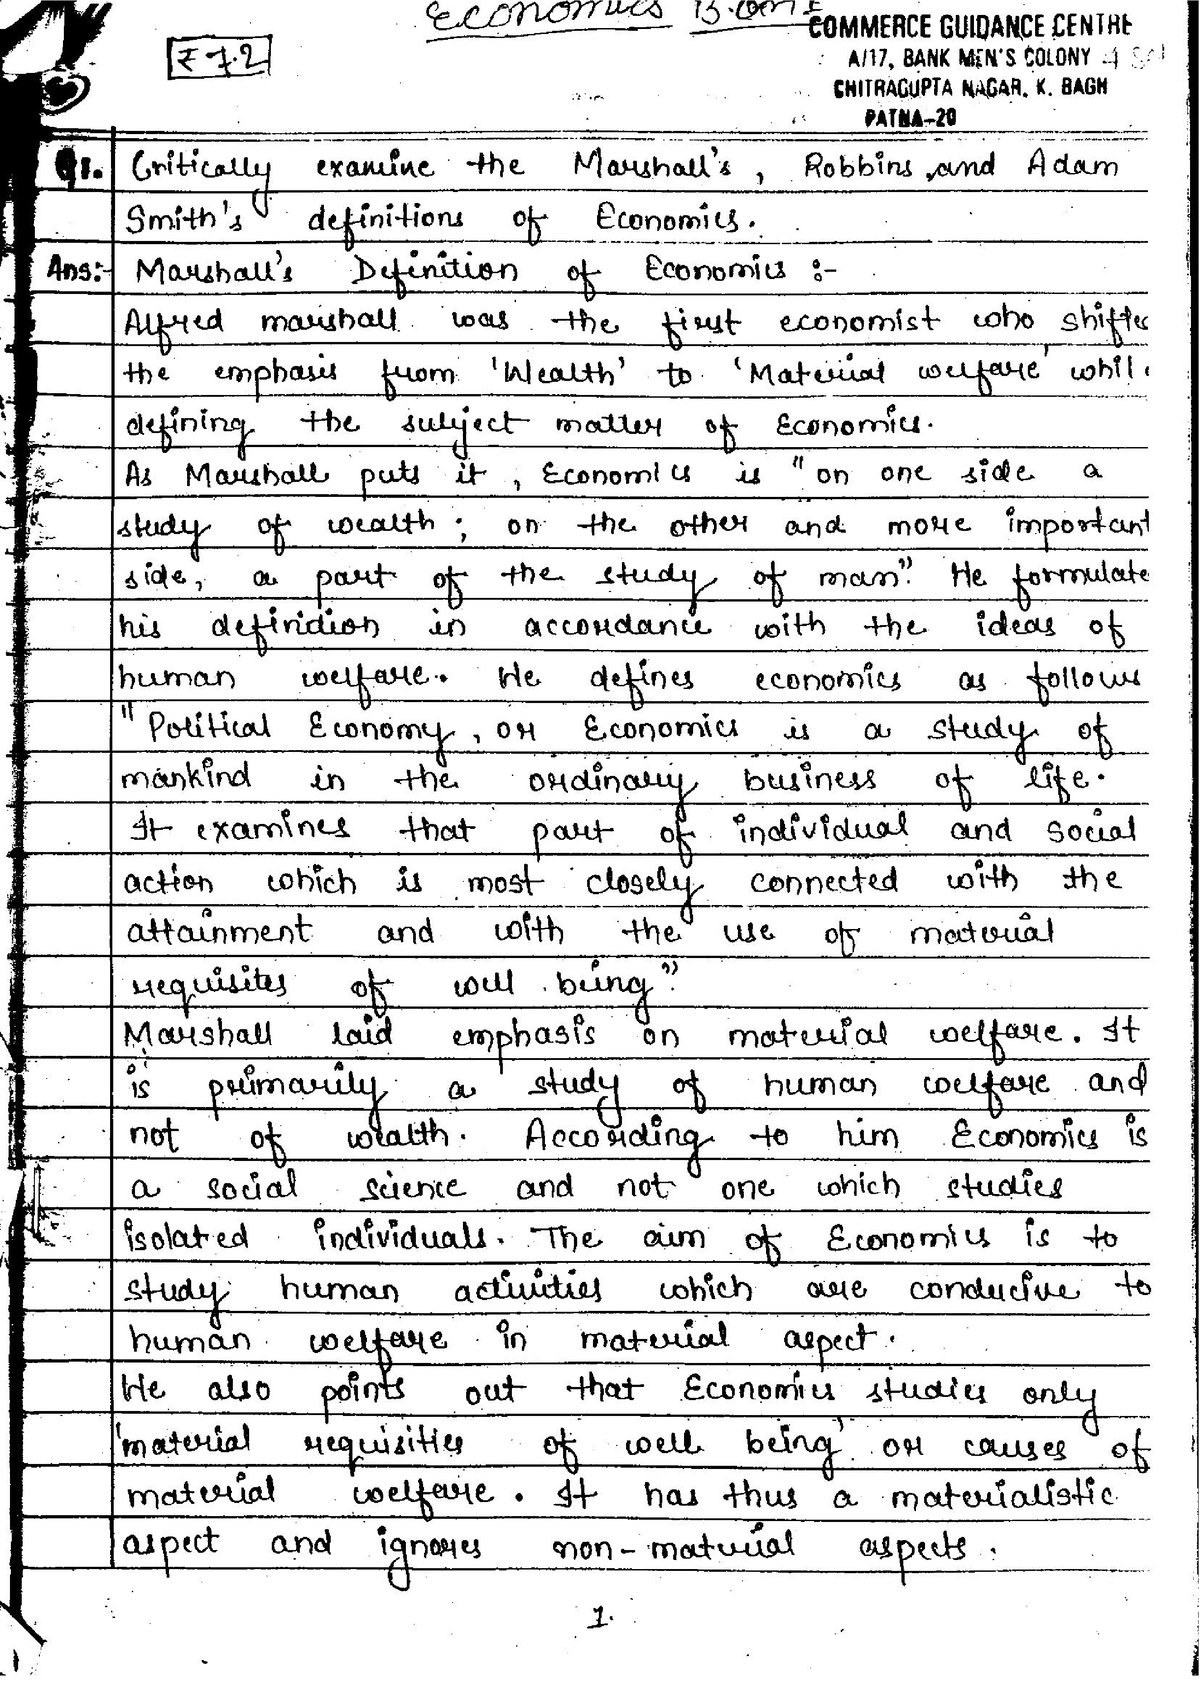 Economics B.Com I
COMMERCE GUIDANCE CENTRE
₹ 72
A/17, BANK MEN'S COLONY
CHITRAGUPTA NAGAR, K. BAGH
PATNA-20
Q1. Critically examine the Marshall's, Robbins, and Adam
Smith's definitions of Economics.
Ans:- Marshall's Definition of Economics :-
Alfred marshall was the first economist who shifted
the emphasis from 'Wealth' to 'Material welfare' while
defining the subject matter of Economics.
As Marshall puts it, Economics is "on one side a
study of wealth; on the other and more important
side, a part of the study of man". He formulate
his definition in accordance with the ideas of
human welfare. He defines economics as follows
"Political Economy, or Economics is a study of
mankind in the ordinary business of life.
It examines that part of individual and social
action which is most closely connected with the
attainment and with the use of material
requisites of well being".
Marshall laid emphasis on material welfare. It
is primarily a study of human welfare and
not of wealth. According to him Economics is
a social science and not one which studies
isolated individuals. The aim of Economics is to
study human activities which are conducive to
human welfare in material aspect.
He also points out that Economics studies only
'material requisities of well being' or causes of
material welfare. It has thus a materialistic
aspect and ignores non-material aspects.
1.